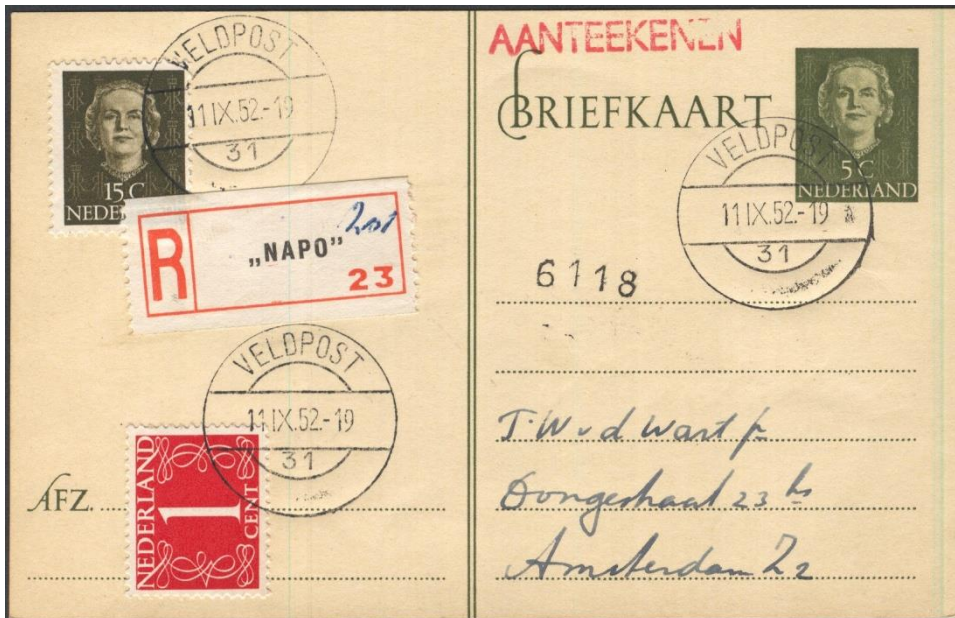 VELDPOST
11 IX.52.-19
31
15 C
NEDER
R
„NAPO”
23
VELDPOST
11 IX.52.-19
31
NEDERLAND
1
CENT
AFZ.
AANTEEKENEN
BRIEFKAART
5 C
NEDERLAND
VELDPOST
11 IX.52.-19
31
6118
J. W v d Wart jr
Dongestraat 23 hs
Amsterdam Z2